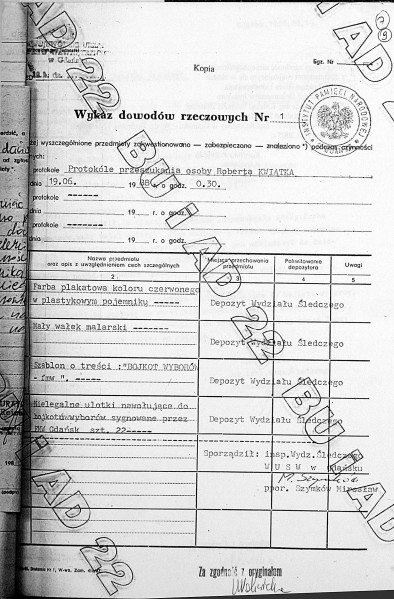 Kopia
Sygn. Nr
7
9
Wykaz dowodów rzeczowych Nr 1
INSTYTUT PAMIĘCI NARODOWEJ
ej wyszczególnione przedmioty zakwestionowano — zabezpieczono — znaleziono *) podczas czynności
nych:
protokole Protokóle przeszukania osoby Roberta KWIATKA
dnia 19.06. 19 89 r. o godz. 0.30.
protokole -------
dnia 19 r. o godz.
protokole -------
dnia 19 r. o godz.
Nazwa przedmiotu oraz opis z uwzględnieniem cech szczególnych
Miejsce przechowania przedmiotu
Pokwitowanie depozytora
Uwagi
2 3 4 5
Farba plakatowa koloru czerwonego
w plastykowym pojemniku ----- Depozyt Wydziału Śledczego
Mały wałek malarski ------- Depozyt Wydziału Śledczego
Szablon o treści :"BOJKOT WYBORÓW
- fmw ". ----- Depozyt Wydziału Śledczego
Nielegalne ulotki nawołujące do
bojkotu wyborów sygnowane przez Depozyt Wydziału Śledczego
FMW Gdańsk szt. 22-----
Sporządził: insp.Wydz.Śledczego
W U S W w Gdańsku
ppor. Szymków Mirosław
Za zgodność z oryginałem
BU i AD 22